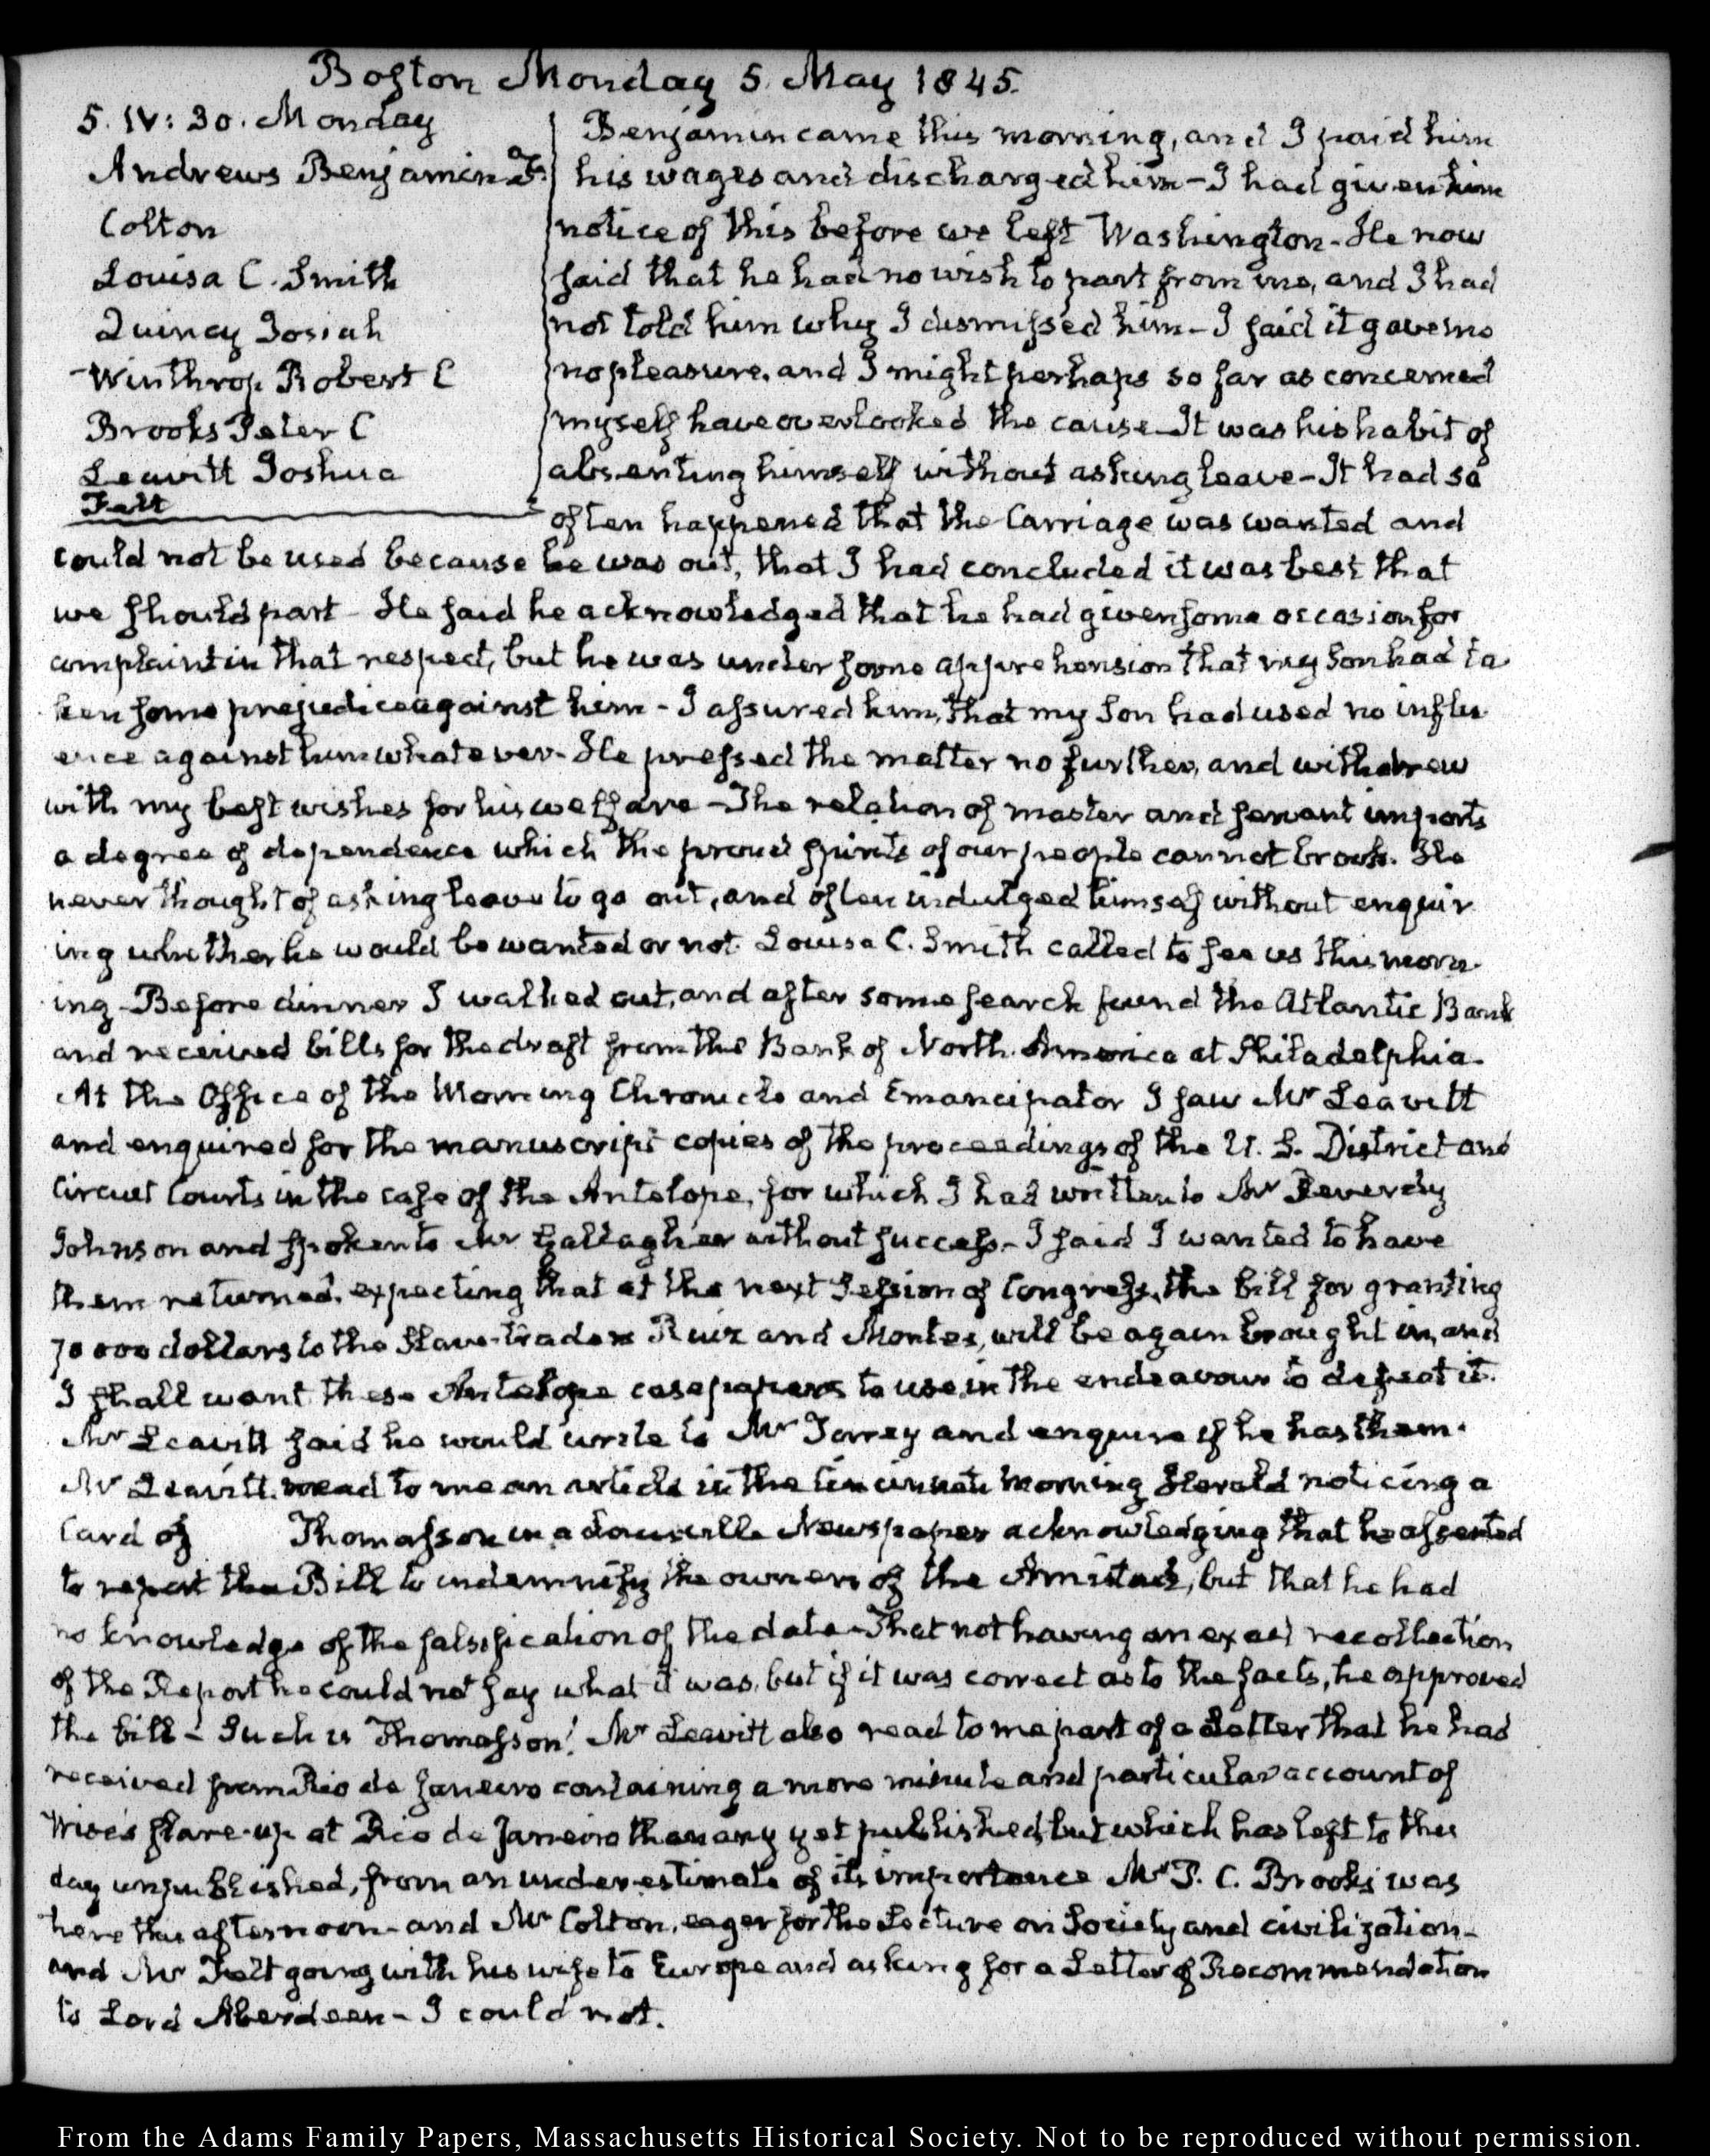 Boston Monday 5. May 1845.
5. IV: 30. Monday
Andrews Benjamin F.
Colton
Louisa C. Smith
Quincy Josiah
Winthrop Robert C
Brooks Peter C
Leavitt Joshua
Felt
Benjamin came this morning, and I paid him
his wages and discharged him - I had given him
notice of this before we left Washington. He now
said that he had no wish to part from me, and I had
not told him why I dismissed him - I said it gave me
no pleasure, and I might perhaps so far as concerned
myself have overlooked the cause - It was his habit of
absenting himself without asking leave - It had so
often happened that the Carriage was wanted and
could not be used because he was out, that I had concluded it was best that
we should part - He said he acknowledged that he had given some occasion for
complaint in that respect, but he was under some apprehension that my Son had ta
ken some prejudice against him - I assured him, that my Son had used no influ
ence against him whatever - He pressed the matter no further, and withdrew
with my best wishes for his welfare - The relation of master and servant imports
a degree of dependence which the proud spirits of our people cannot brook. He
never thought of asking leave to go out, and often indulged himself without enquir
ing whether he would be wanted or not. Louisa C. Smith called to see us this morn
ing - Before dinner I walked out, and after some search found the Atlantic Bank
and received bills for the draft from the Bank of North America at Philadelphia.
At the Office of the Morning Chronicle and Emancipator I saw Mr Leavitt
and enquired for the manuscript copies of the proceedings of the U. S. District and
Circuit Courts in the case of the Antelope, for which I had written to Mr Reverdy
Johnson and spoken to Mr Gallagher without success - I said I wanted to have
them returned, expecting that at the next Session of Congress, the bill for granting
70 000 dollars to the Slave-traders Ruiz and Montes, will be again brought in, and
I shall want these Antelope case papers to use in the endeavour to defeat it.
Mr Leavitt said he would write to Mr Torrey and enquire if he has them.
Mr Leavitt read to me an article in the Cincinnati Morning Herald noticing a
Card of Thomasson in a Louisville Newspaper acknowledging that he assented
to report the Bill to indemnify the owners of the Amistad, but that he had
no knowledge of the falsification of the date - That not having an exact recollection
of the Report he could not say what it was, but if it was correct as to the facts, he approved
the bill - Such is Thomasson! Mr Leavitt also read to me part of a Letter that he had
received from Rio de Janeiro containing a more minute and particular account of
Wise's flare-up at Rio de Janeiro than any yet published, but which has left to this
day unpublished, from an under-estimate of its importance Mr P. C. Brooks was
here this afternoon - and Mr Colton, eager for the Lecture on Society and civilization -
and Mr Felt going with his wife to Europe and asking for a Letter of Recommendation
to Lord Aberdeen - I could not.
From the Adams Family Papers, Massachusetts Historical Society. Not to be reproduced without permission.